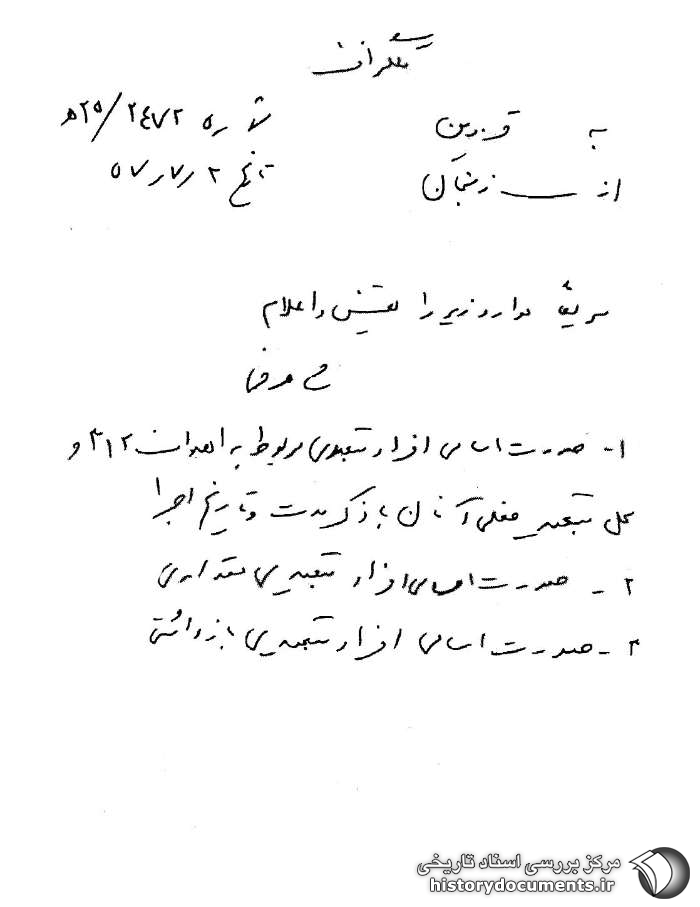 تلگراف
به قزوین شماره ۲۵/۲٤۷۲ ﻫ
از زنجان تاریخ ۵۷/۷/۲
سریعا موارد زیر را تعیین و اعلام
فرمائید
۱- صورت اسامی افراد تبعیدی مربوط به اهداف ۳۱۲ و
محل تبعید فعلی آنان با ذکر مدت و تاریخ اجرا
۲- صورت اسامی افراد تبعیدی متواری
۳- صورت اسامی افراد تبعیدی بازداشتی
مرکز بررسی اسناد تاریخی
historydocuments.ir